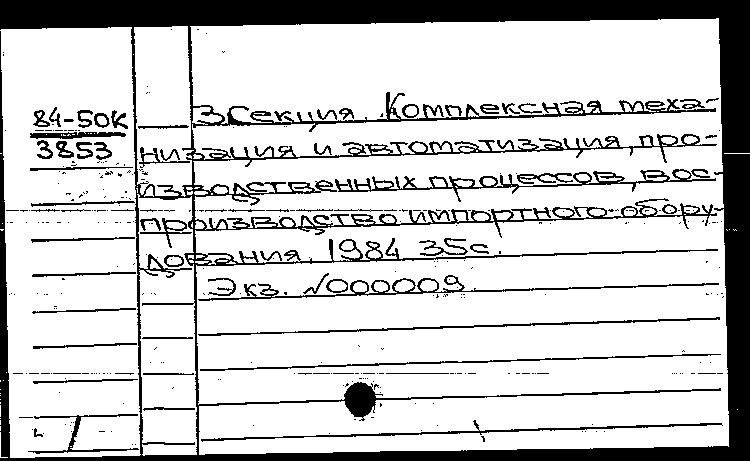 84-50К
3853
3.Секция. Комплексная меха-
низация и автоматизация, про-
изводственных процессов, вос-
производство импортного обору-
дования. 1984 35с.
Экз. №000009